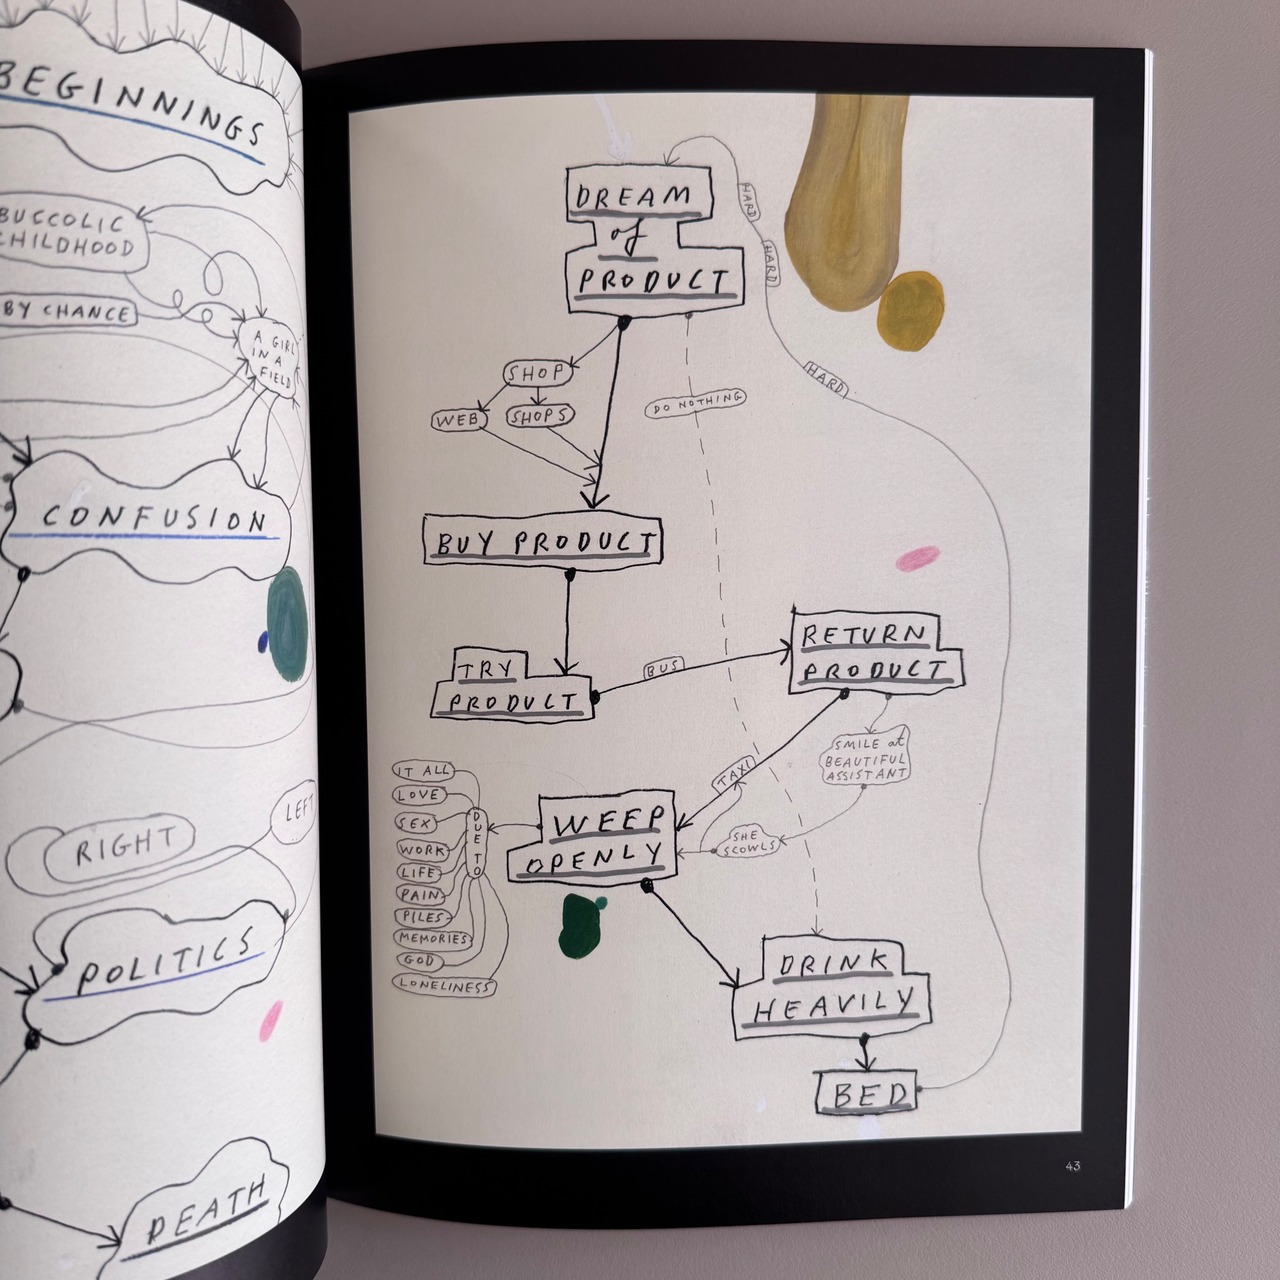 BEGINNINGS
BUCCOLIC
CHILDHOOD
BY CHANCE
A GIRL
IN A
FIELD
CONFUSION
RIGHT
LEFT
POLITICS
DEATH
DREAM
of
PRODUCT
HARD
HARD
HARD
SHOP
WEB
SHOPS
DO NOTHING
BUY PRODUCT
TRY
PRODUCT
BUS
RETURN
PRODUCT
SMILE at
BEAUTIFUL
ASSISTANT
TAXI
SHE
SCOWLS
WEEP
OPENLY
DUE TO
IT ALL
LOVE
SEX
WORK
LIFE
PAIN
PILES
MEMORIES
GOD
LONELINESS
DRINK
HEAVILY
BED
43